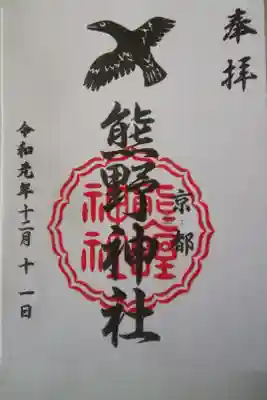 奉拝
京都
熊野神社
令和元年十二月十一日